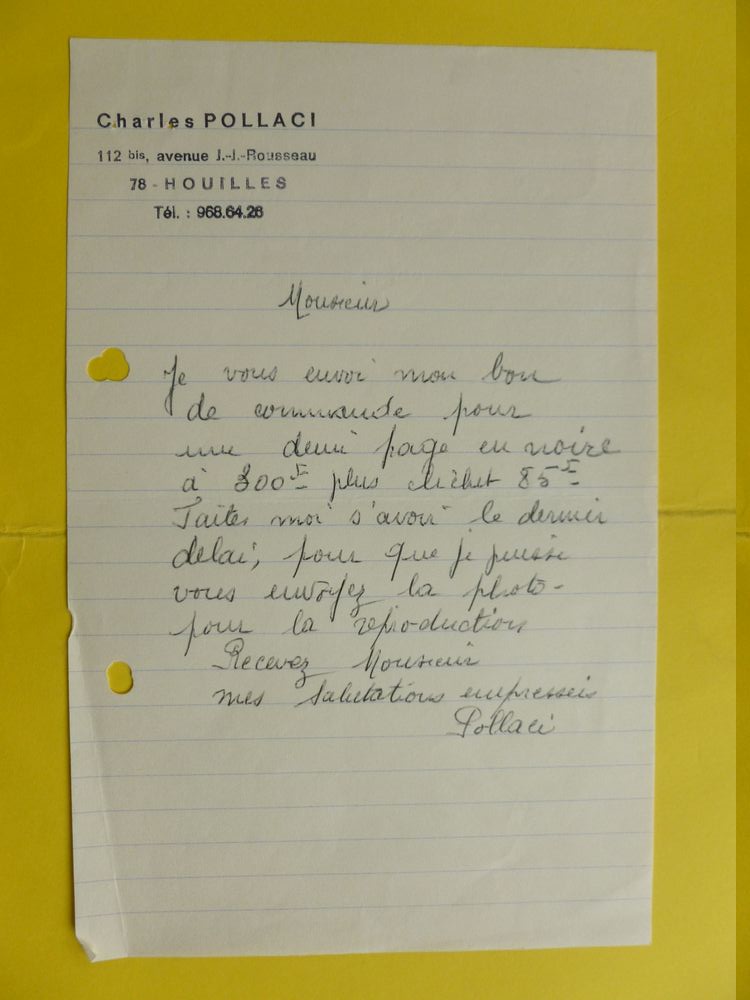 Charles POLLACI
112 bis, avenue J.-J.-Rousseau
78 - HOUILLES
Tél. : 968.64.28
Monsieur
Je vous envoi mon bon
de commande pour
une demi page en noire
à 300F plus clichet 85F
Faites moi s'avoir le dernier
delai, pour que je puisse
vous envoyez la photo-
pour la reproduction
Recevez Monsieur
mes Salutations empresseis
Pollaci